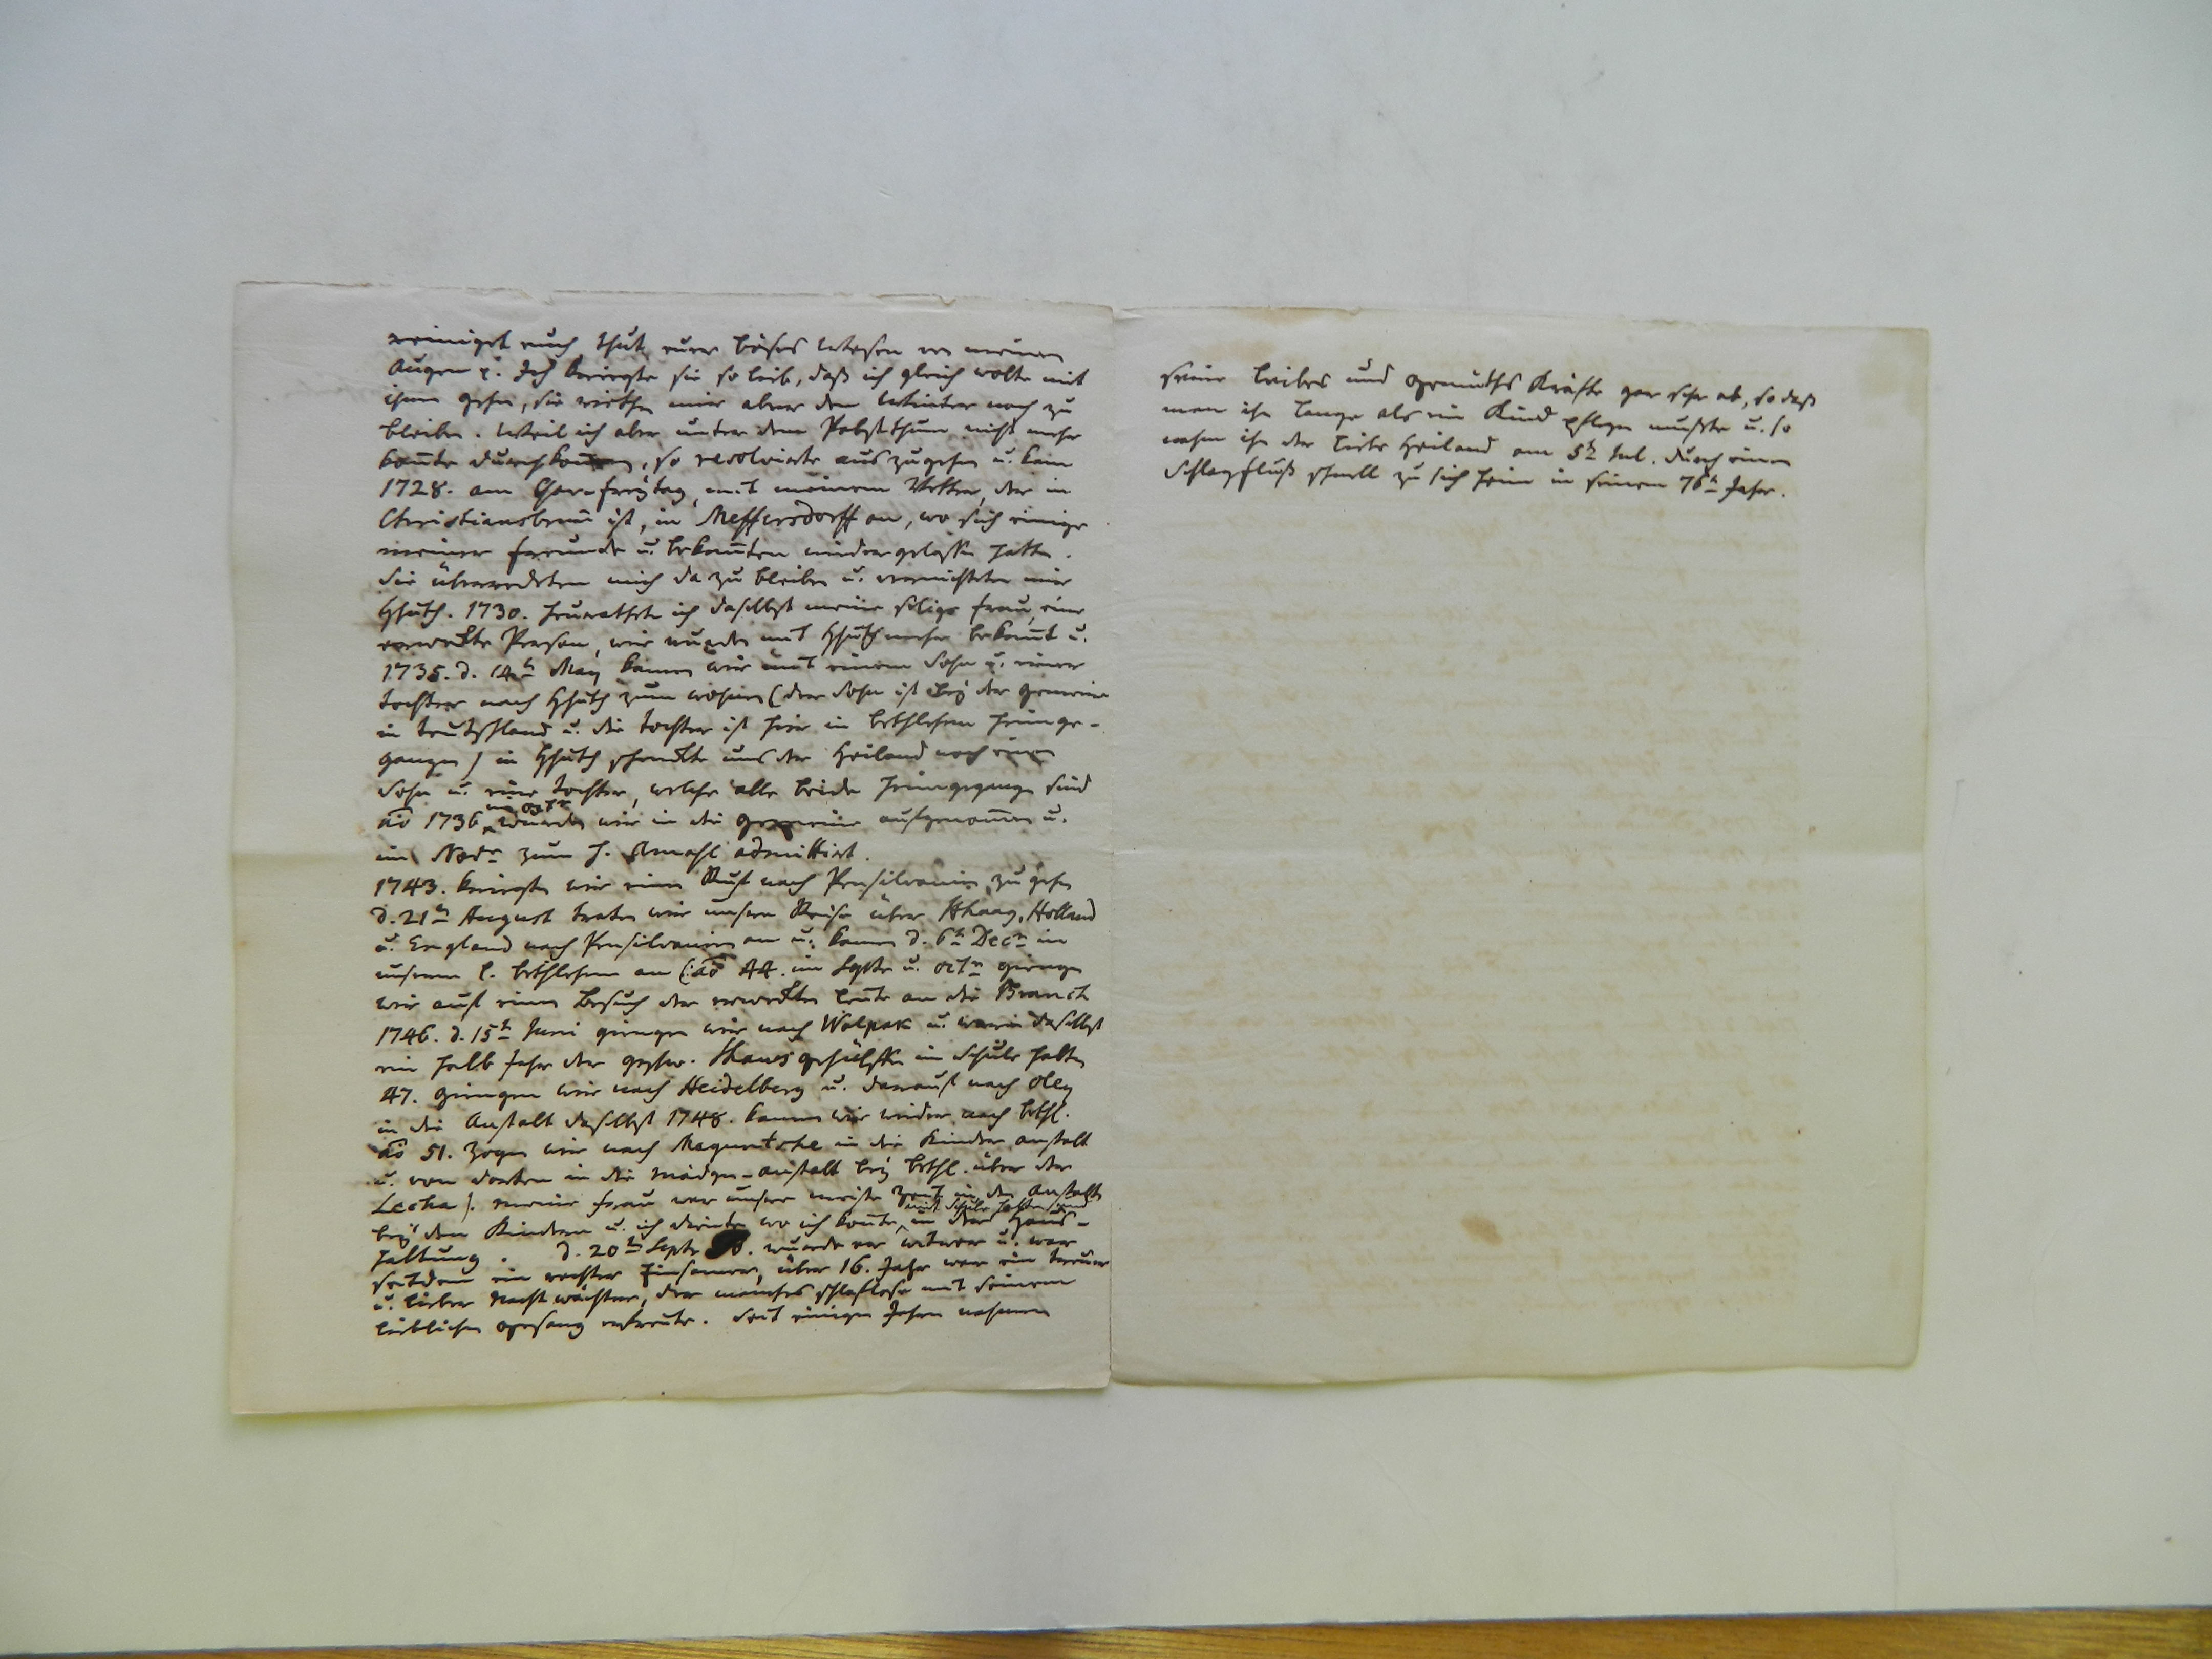 reiniget euch, thut euer böses Wesen von meinen
Augen p. Ich kriegte sie so lieb, daß ich gleich wolte mit
ihnen gehn, sie riethen mir aber den Winter noch zu
bleiben. Weil ich aber unter dem Pabstthum nicht mehr
konte durchkommen, so resolvirte auszugehen u. kam
1728. am Char-freytag, mit meinem Vetter, der in
Christiansbrunn ist, in Meffersdorff an, wo sich einige
meiner freunde u. bekannten niedergelassen hatten.
Sie überredeten mich da zu bleiben u. vernichteten mir
Hhuth. 1730. heurathete ich daselbst meine selige frau, eine
erweckte Person, wir wurden mit Hhuth mehr bekannt u.
1735. d. 14tn May kamen wir mit einem Sohn u. einer
tochter nach Hhuth zum wohnen (der Sohn ist bey der gemeine
in teutschland u. die tochter ist hier in bethlehem heimge-
gangen) in Hhuth schenckte uns der Heiland noch einen
Sohn u. eine tochter, welche alle beide heimgegangen sind
ao 1736 im octr wurden wir in die gemeine aufgenommen u.
im Novr zum h. Abmahl admittirt.
1743. kriegten wir einen Ruf nach Pensilvanien zu gehen
d. 21tn August traten wir unsere Reise über Hhaag, Holland
u. England nach Pensilvanien an u. kamen d. 6tn Decr in
unserm l. bethlehem an (: ao 44. im Septr u. octr gingen
wir auf einen Besuch der erweckten leute an die Branch
1746. d. 15tn Juni gingen wir nach Walpak u. waren daselbst
ein halb Jahr der geschw. Shaws gehülffen im Schule halten
47. gingen wir nach Heidelberg u. darauf nach Oley
in die Anstalt daselbst 1748. kamen wir wieder nach bethl.
ao 51. zogen wir nach Maguntsche in die Kinder anstalt
u. von dorten in die mädgen-anstalt bey bethl. über der
Lecha). meine frau war unsere meiste Zeit in den Anstalten
bey den Kindern u. ich diente wo ich konte, mit Schule halten und in der Haus-
haltung. d. 20tn Septr wurde er witwer u. war
seitdem ein rechter Einsamer, über 16. Jahr war ein treuer
u. lieber Nachtwächter, der manches schlaflose mit seinem
lieblichen gesang erfreute. Seit einigen Jahren nahmen
seine leibes und gemüths Kräfte gar sehr ab, so daß
man ihn lange als ein Kind pflegen muste u. so
nahm ihn der liebe Heiland am 5tn Jul. durch einen
Schlagfluß schnell zu sich heim in seinem 76tn Jahr.